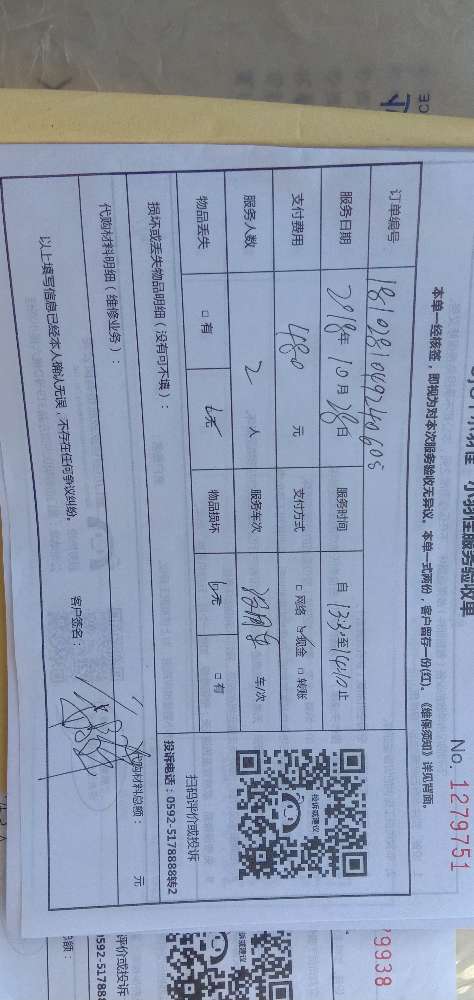 小羽佳服务验收单
No. 1279751
本单一经核签，即视为对本次服务验收无异议。本单一式两份，客户留存一份(红)。《维保须知》详见背面。
订单编号 1810281049240605
服务日期 2018年 10月 28日 服务时间 自 13:30至14:10止
支付费用 480 元 支付方式 □ 网络 ☑现金 □ 转账
服务人数 2 人 服务车次 车/次
物品丢失 □ 有 ☑无 物品损坏 ☑无 □ 有
投诉或建议
扫码评价或投诉
投诉电话：0592-5178888转2
损坏或丢失物品明细（没有可不填）：
代购材料明细（维修业务）：
代购材料总额： 元
以上填写信息已经本人确认无误，不存在任何争议纠纷。
客户签名：
79938
评价或投诉
592-51788
总额：
CE